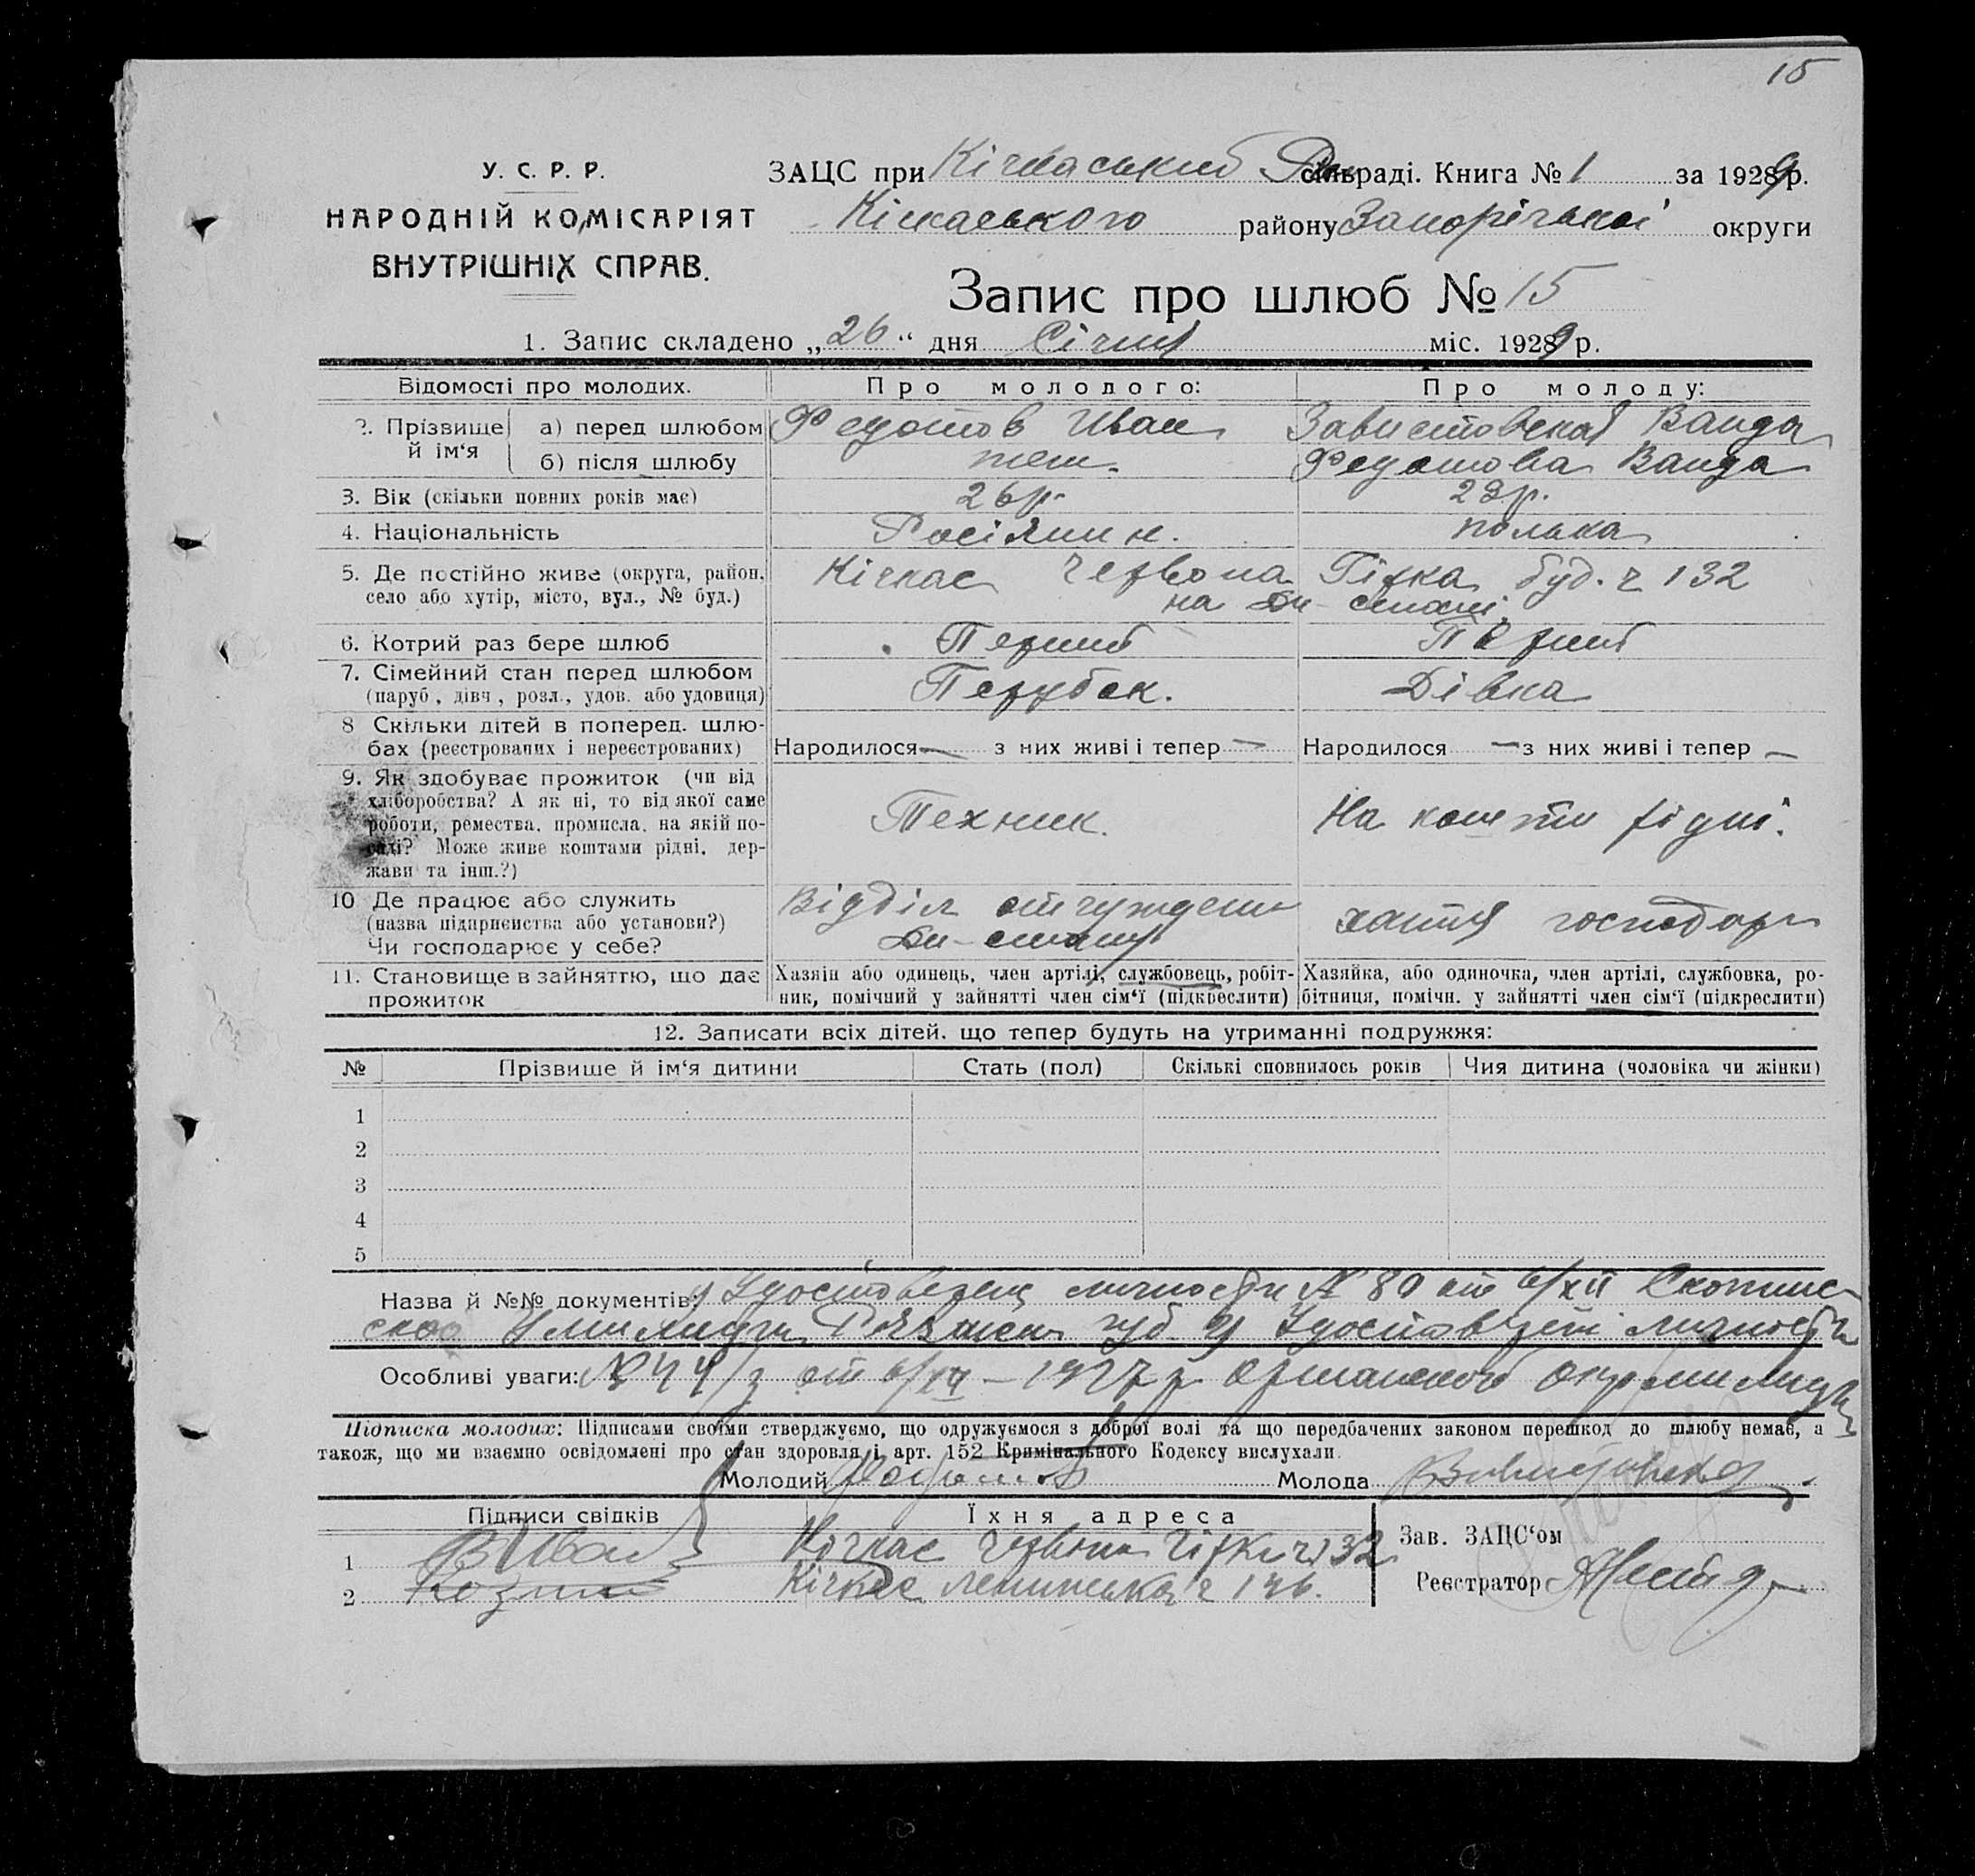 15
У. С. Р. Р.
НАРОДНІЙ КОМІСАРІЯТ
ВНУТРІШНІХ СПРАВ.
ЗАЦС при Кічкаський сільраді. Книга № 1 за 1929 р.
Кічкаського району Запорізької округи
Запис про шлюб № 15
1. Запис складено „26“ дня Січня міс. 1929 р.
Відомості про молодих. Про молодого: Про молоду:
2. Прізвище й ім‘я а) перед шлюбом Федотов Иван Завистовская Ванда
б) після шлюбу теж. Федотова Ванда
3. Вік (скільки повних років має) 26 р. 22 р.
4. Національність Росіянин. полька
5. Де постійно живе (округа, район, Кічкас Червона Гірка буд. ч 132
село або хутір, місто, вул., № буд.) на
6. Котрий раз бере шлюб Перший Перший
7. Сімейний стан перед шлюбом Парубок. Дівка
(паруб., дівч., розл., удов. або удовиця)
8 Скільки дітей в поперед. шлю-
бах (реєстрованих і нереєстрованих) Народилося — з них живі і тепер — Народилося — з них живі і тепер —
9. Як здобуває прожиток (чи від
хліборобства? А як ні, то від якої саме
роботи, ремества, промисла, на якій по- Технік. На кошти рідні.
саді? Може живе коштами рідні, дер-
жави та інш.?)
10 Де працює або служить Відділ отчужден
(назва підприємства або установи?) хатня господар
Чи господарює у себе?
11. Становище в зайняттю, що дає Хазяїн або одинець, член артілі, службовець, робіт- Хазяйка, або одиночка, член артілі, службовка, ро-
прожиток ник, помічний у зайнятті член сім‘ї (підкреслити) бітниця, помічн. у зайнятті член сім‘ї (підкреслити)
12. Записати всіх дітей, що тепер будуть на утриманні подружжя:
№ Прізвище й ім‘я дитини Стать (пол) Скількі сповнилось років Чия дитина (чоловіка чи жінки)
1
2
3
4
5
Назва й №№ документів: Удостоверен личности № 80 от 6/XII Скопин-
ской милиции Рязанск губ. Удостоверен личности
Особливі уваги: от 1927 р Окр милиции
Підписка молодих: Підписами своїми стверджуємо, що одружуємося з доброї волі та що передбачених законом перешкод до шлюбу немає, а
також, що ми взаємно освідомлені про стан здоровля і арт. 152 Кримінального Кодексу вислухали.
Молодий Федотов Молода Завистовская
Підписи свідків Їхня адреса
1 Кічкас Червона Гірка ч 132
2 Кічкас Ленинська ч 136.
Зав. ЗАЦС‘ом
Реєстратор